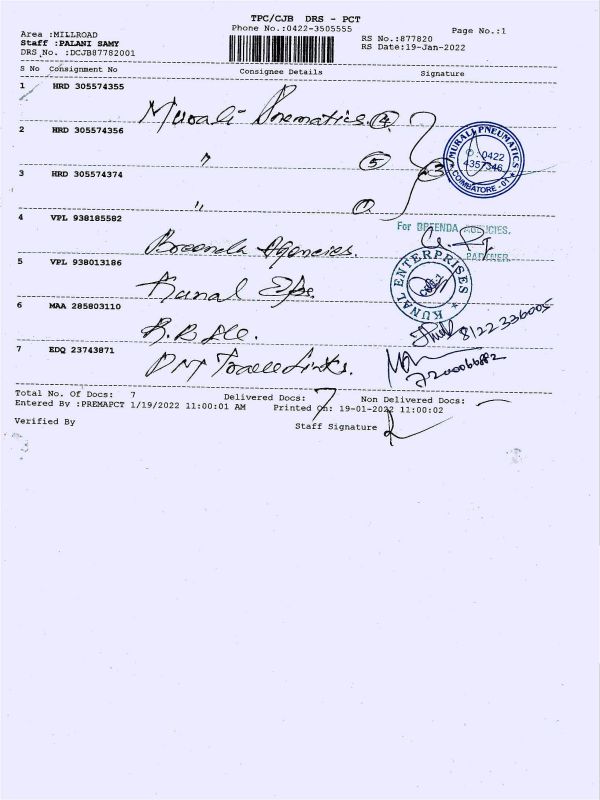 TPC/CJB DRS - PCT
Phone No.:0422-3505555
Page No.:1
Area :MILLROAD
Staff :PALANI SAMY
DRS No. :DCJB87782001
RS No.:877820
RS Date:19-Jan-2022
S No Consignment No Consignee Details Signature
1 HRD 305574355
Murali Pnematics. 4
2 HRD 305574356
" 5
3
MURALI PNEUMATICS
0422
4357346
COIMBATORE - 01
3 HRD 305574374
"
4 VPL 938185582
Breenda Agencies.
For BREENDA AGENCIES,
PARTNER
5 VPL 938013186
Kunal
KUNAL ENTERPRISES
6 MAA 285803110
8122336005
7 EDQ 23743871
DNT
Total No. Of Docs: 7 Delivered Docs: 7 Non Delivered Docs: —
Entered By :PREMAPCT 1/19/2022 11:00:01 AM Printed On: 19-01-2022 11:00:02
Verified By Staff Signature